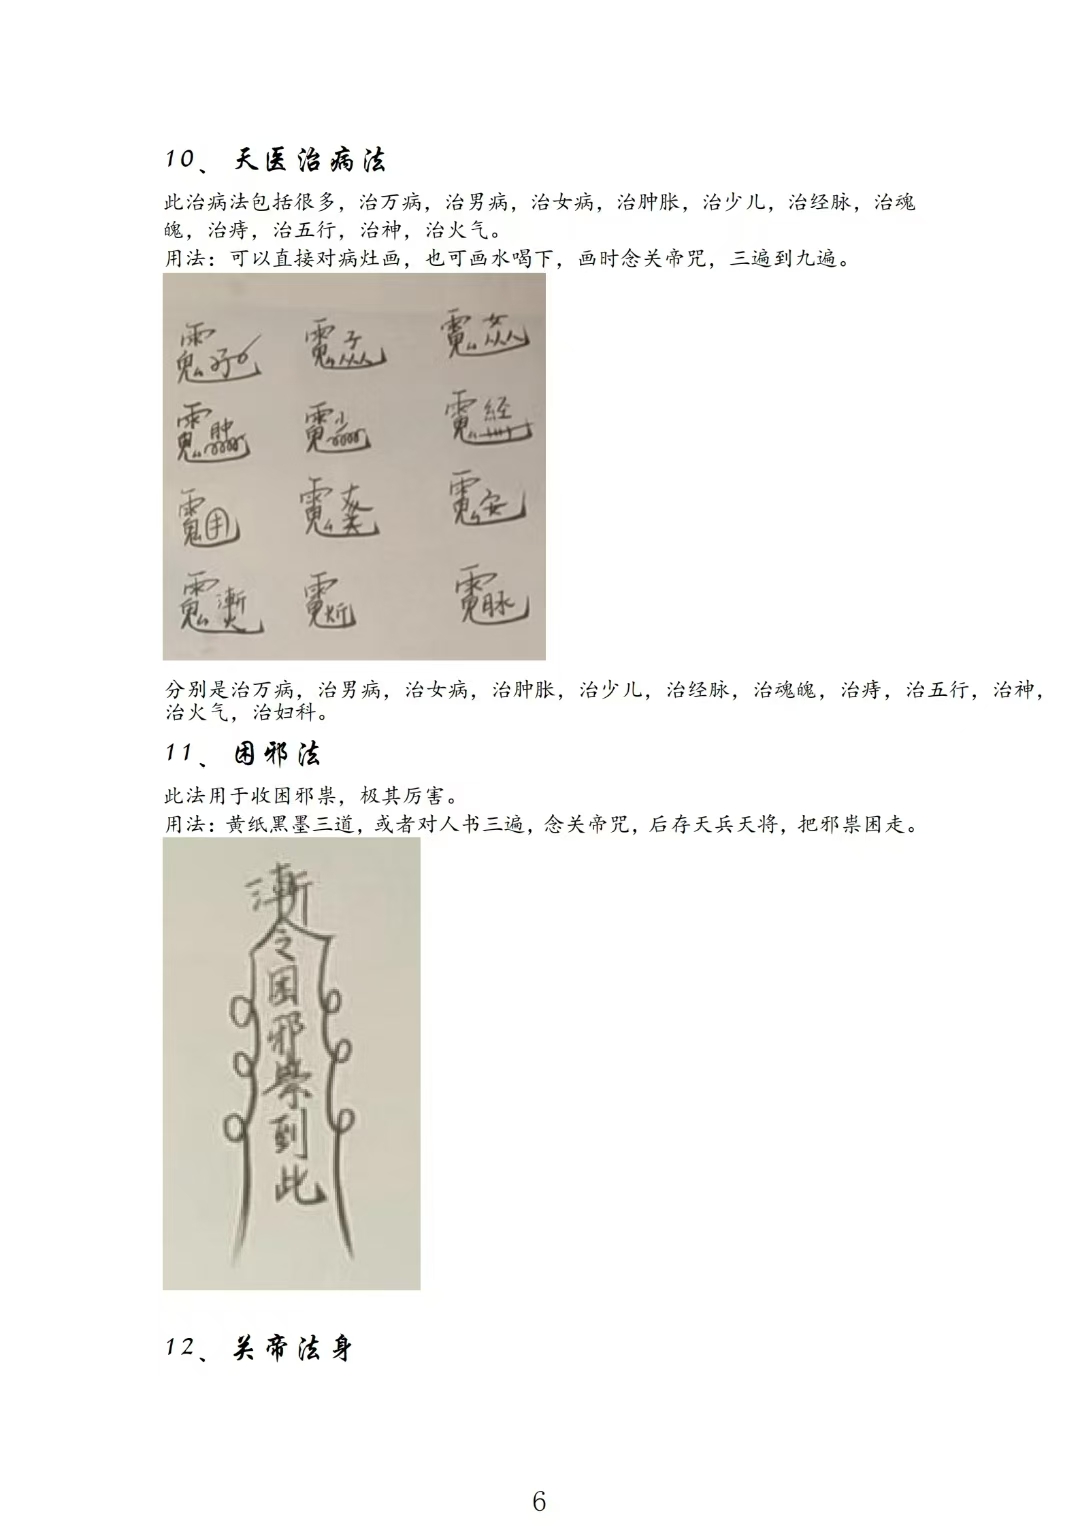 10、天医治病法
此治病法包括很多，治万病，治男病，治女病，治肿胀，治少儿，治经脉，治魂
魄，治痔，治五行，治神，治火气。
用法：可以直接对病灶画，也可画水喝下，画时念关帝咒，三遍到九遍。
分别是治万病，治男病，治女病，治肿胀，治少儿，治经脉，治魂魄，治痔，治五行，治神，
治火气，治妇科。
11、困邪法
此法用于收困邪祟，极其厉害。
用法：黄纸黑墨三道，或者对人书三遍，念关帝咒，后存天兵天将，把邪祟困走。
令
困
邪
祟
到
此
12、关帝法身
6